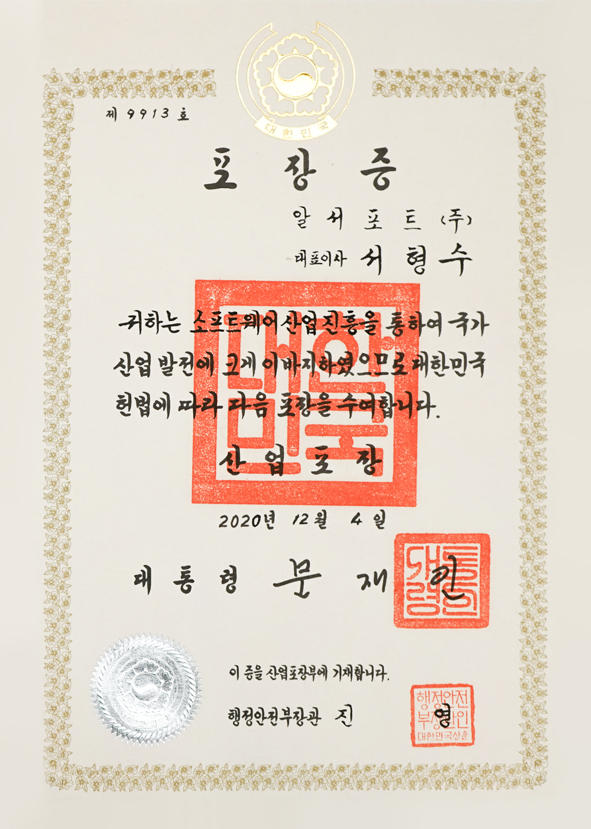 대한민국
제 9913 호
포장증
알서포트(주)
대표이사 서형수
귀하는 소프트웨어산업진흥을 통하여 국가
산업발전에 크게 이바지하였으므로 대한민국
헌법에 따라 다음 포장을 수여합니다.
대한
민국
산업포장
2020년 12월 4일
대통령 문재인
대통
령의
이 증을 산업포장부에 기재합니다.
행정안전부장관 진영
행정안전
부장관인
대한민국상훈